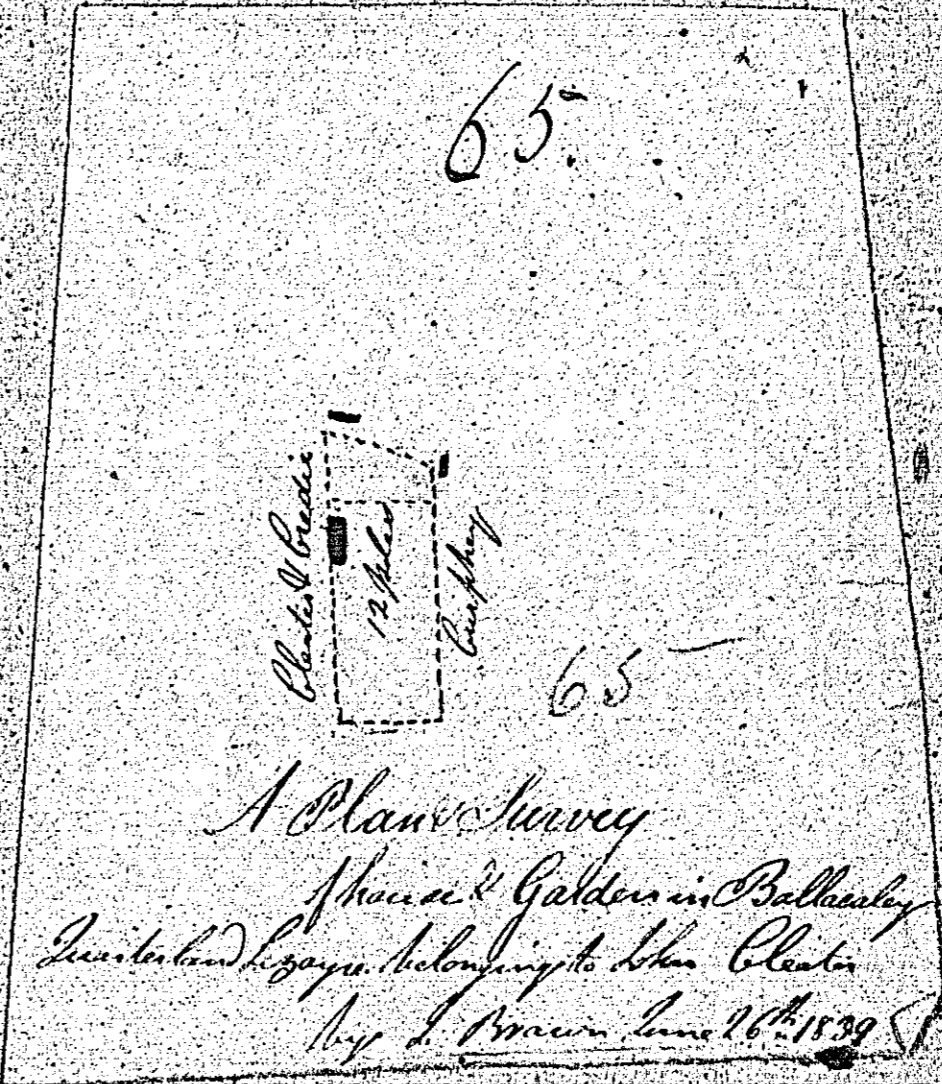 65.
Cleator & Creedie
12 perches
Curphey
65
A Plan & Survey
of house & Garden in Ballacaley
Quarterland Lezayre belonging to John Cleator
by J. Brown June 26th 1839